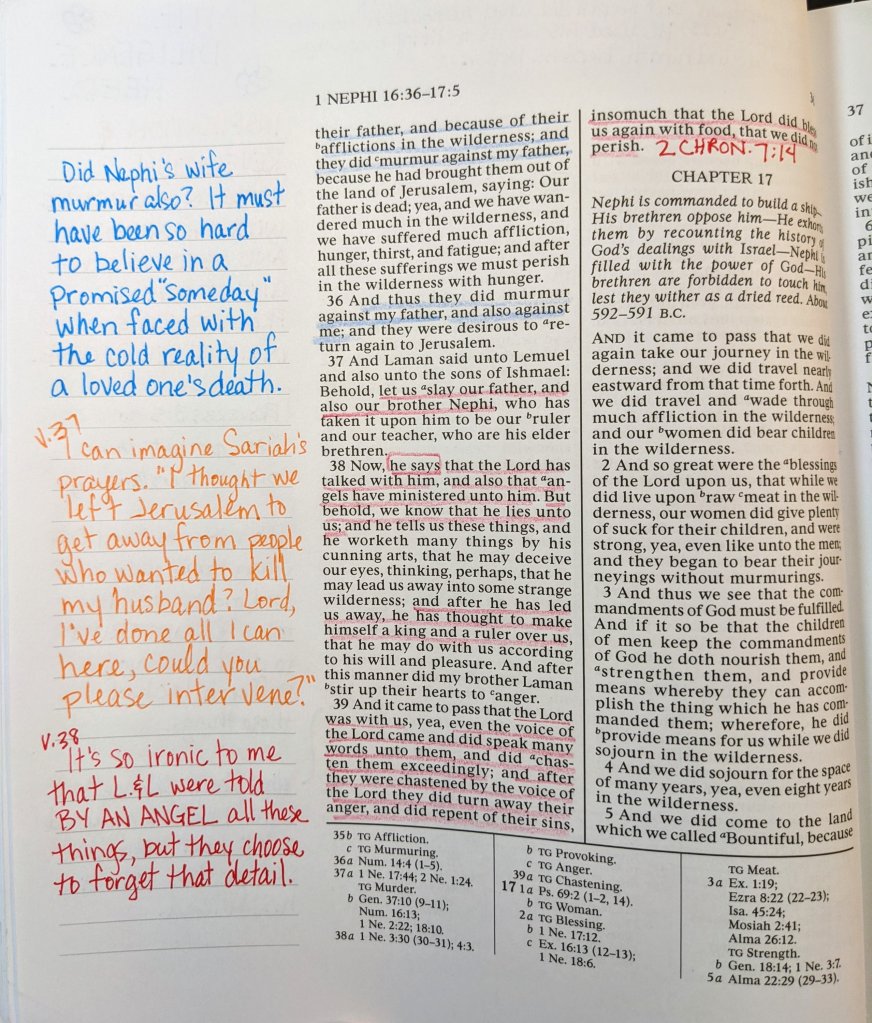 Did Nephi's wife
murmur also? It must
have been so hard
to believe in a
promised "someday"
when faced with
the cold reality of
a loved one's death.
v.37
I can imagine Sariah's
prayers. "I thought we
left Jerusalem to
get away from people
who wanted to kill
my husband? Lord,
I've done all I can
here, could you
please intervene?"
v.38
It's so ironic to me
that L.&L were told
BY AN ANGEL all these
things, but they choose
to forget that detail.
1 NEPHI 16:36–17:5
their father, and because of their
bafflictions in the wilderness; and
they did cmurmur against my father,
because he had brought them out of
the land of Jerusalem, saying: Our
father is dead; yea, and we have wan-
dered much in the wilderness, and
we have suffered much affliction,
hunger, thirst, and fatigue; and after
all these sufferings we must perish
in the wilderness with hunger.
36 And thus they did murmur
against my father, and also against
me; and they were desirous to are-
turn again to Jerusalem.
37 And Laman said unto Lemuel
and also unto the sons of Ishmael:
Behold, let us aslay our father, and
also our brother Nephi, who has
taken it upon him to be our bruler
and our teacher, who are his elder
brethren.
38 Now, he says that the Lord has
talked with him, and also that aan-
gels have ministered unto him. But
behold, we know that he lies unto
us; and he tells us these things, and
he worketh many things by his
cunning arts, that he may deceive
our eyes, thinking, perhaps, that he
may lead us away into some strange
wilderness; and after he has led
us away, he has thought to make
himself a king and a ruler over us,
that he may do with us according
to his will and pleasure. And after
this manner did my brother Laman
bstir up their hearts to canger.
39 And it came to pass that the Lord
was with us, yea, even the voice of
the Lord came and did speak many
words unto them, and did achas-
ten them exceedingly; and after
they were chastened by the voice of
the Lord they did turn away their
anger, and did repent of their sins,
insomuch that the Lord did
us again with food, that we did
perish. 2 CHRON. 7:14
CHAPTER 17
Nephi is commanded to build a ship—
His brethren oppose him—He exhorts
them by recounting the history of
God's dealings with Israel—Nephi is
filled with the power of God—His
brethren are forbidden to touch him,
lest they wither as a dried reed. About
592–591 B.C.
AND it came to pass that we did
again take our journey in the wil-
derness; and we did travel nearly
eastward from that time forth. And
we did travel and awade through
much affliction in the wilderness;
and our bwomen did bear children
in the wilderness.
2 And so great were the ablessings
of the Lord upon us, that while we
did live upon braw cmeat in the wil-
derness, our women did give plenty
of suck for their children, and were
strong, yea, even like unto the men;
and they began to bear their jour-
neyings without murmurings.
3 And thus we see that the com-
mandments of God must be fulfilled.
And if it so be that the children
of men keep the commandments
of God he doth nourish them, and
astrengthen them, and provide
means whereby they can accom-
plish the thing which he has com-
manded them; wherefore, he did
bprovide means for us while we did
sojourn in the wilderness.
4 And we did sojourn for the space
of many years, yea, even eight years
in the wilderness.
5 And we did come to the land
which we called aBountiful, because
35b TG Affliction.
c TG Murmuring.
36a Num. 14:4 (1–5).
37a 1 Ne. 17:44; 2 Ne. 1:24.
TG Murder.
b Gen. 37:10 (9–11);
Num. 16:13;
1 Ne. 2:22; 18:10.
38a 1 Ne. 3:30 (30–31); 4:3.
b TG Provoking.
c TG Anger.
39a TG Chastening.
17 1a Ps. 69:2 (1–2, 14).
b TG Woman.
2a TG Blessing.
b 1 Ne. 17:12.
c Ex. 16:13 (12–13);
1 Ne. 18:6.
TG Meat.
3a Ex. 1:19;
Ezra 8:22 (22–23);
Isa. 45:24;
Mosiah 2:41;
Alma 26:12.
TG Strength.
b Gen. 18:14; 1 Ne. 3:7.
5a Alma 22:29 (29–33).
37